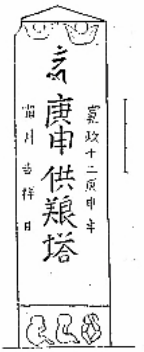 寛政十二庚申年
庚申供養塔
月吉祥日